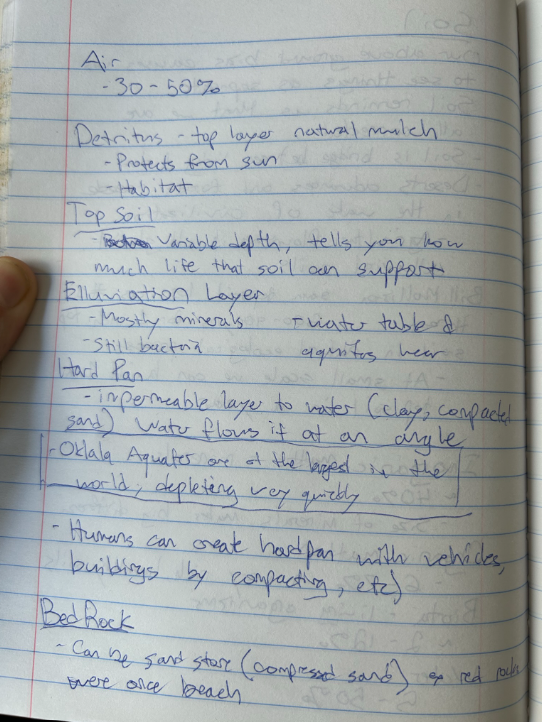 Air
- 30 - 50%
Detritus - top layer natural mulch
- Protects from sun
- Habitat
Top Soil
- Variable depth, tells you how
much life that soil can support
Elluviation Layer
- Mostly minerals - water table &
- Still bactoria aquifers hear
Hard Pan
- impermeable layer to water (clay, compacted
sand) Water flows if at an angle
- Oklala Aquafer one of the largest in the
world, depleting very quickly
- Humans can create hardpan with vehicles,
buildings by compacting, etc)
Bed Rock
- Can be sand stone (compressed sand) red rocks
were once beach